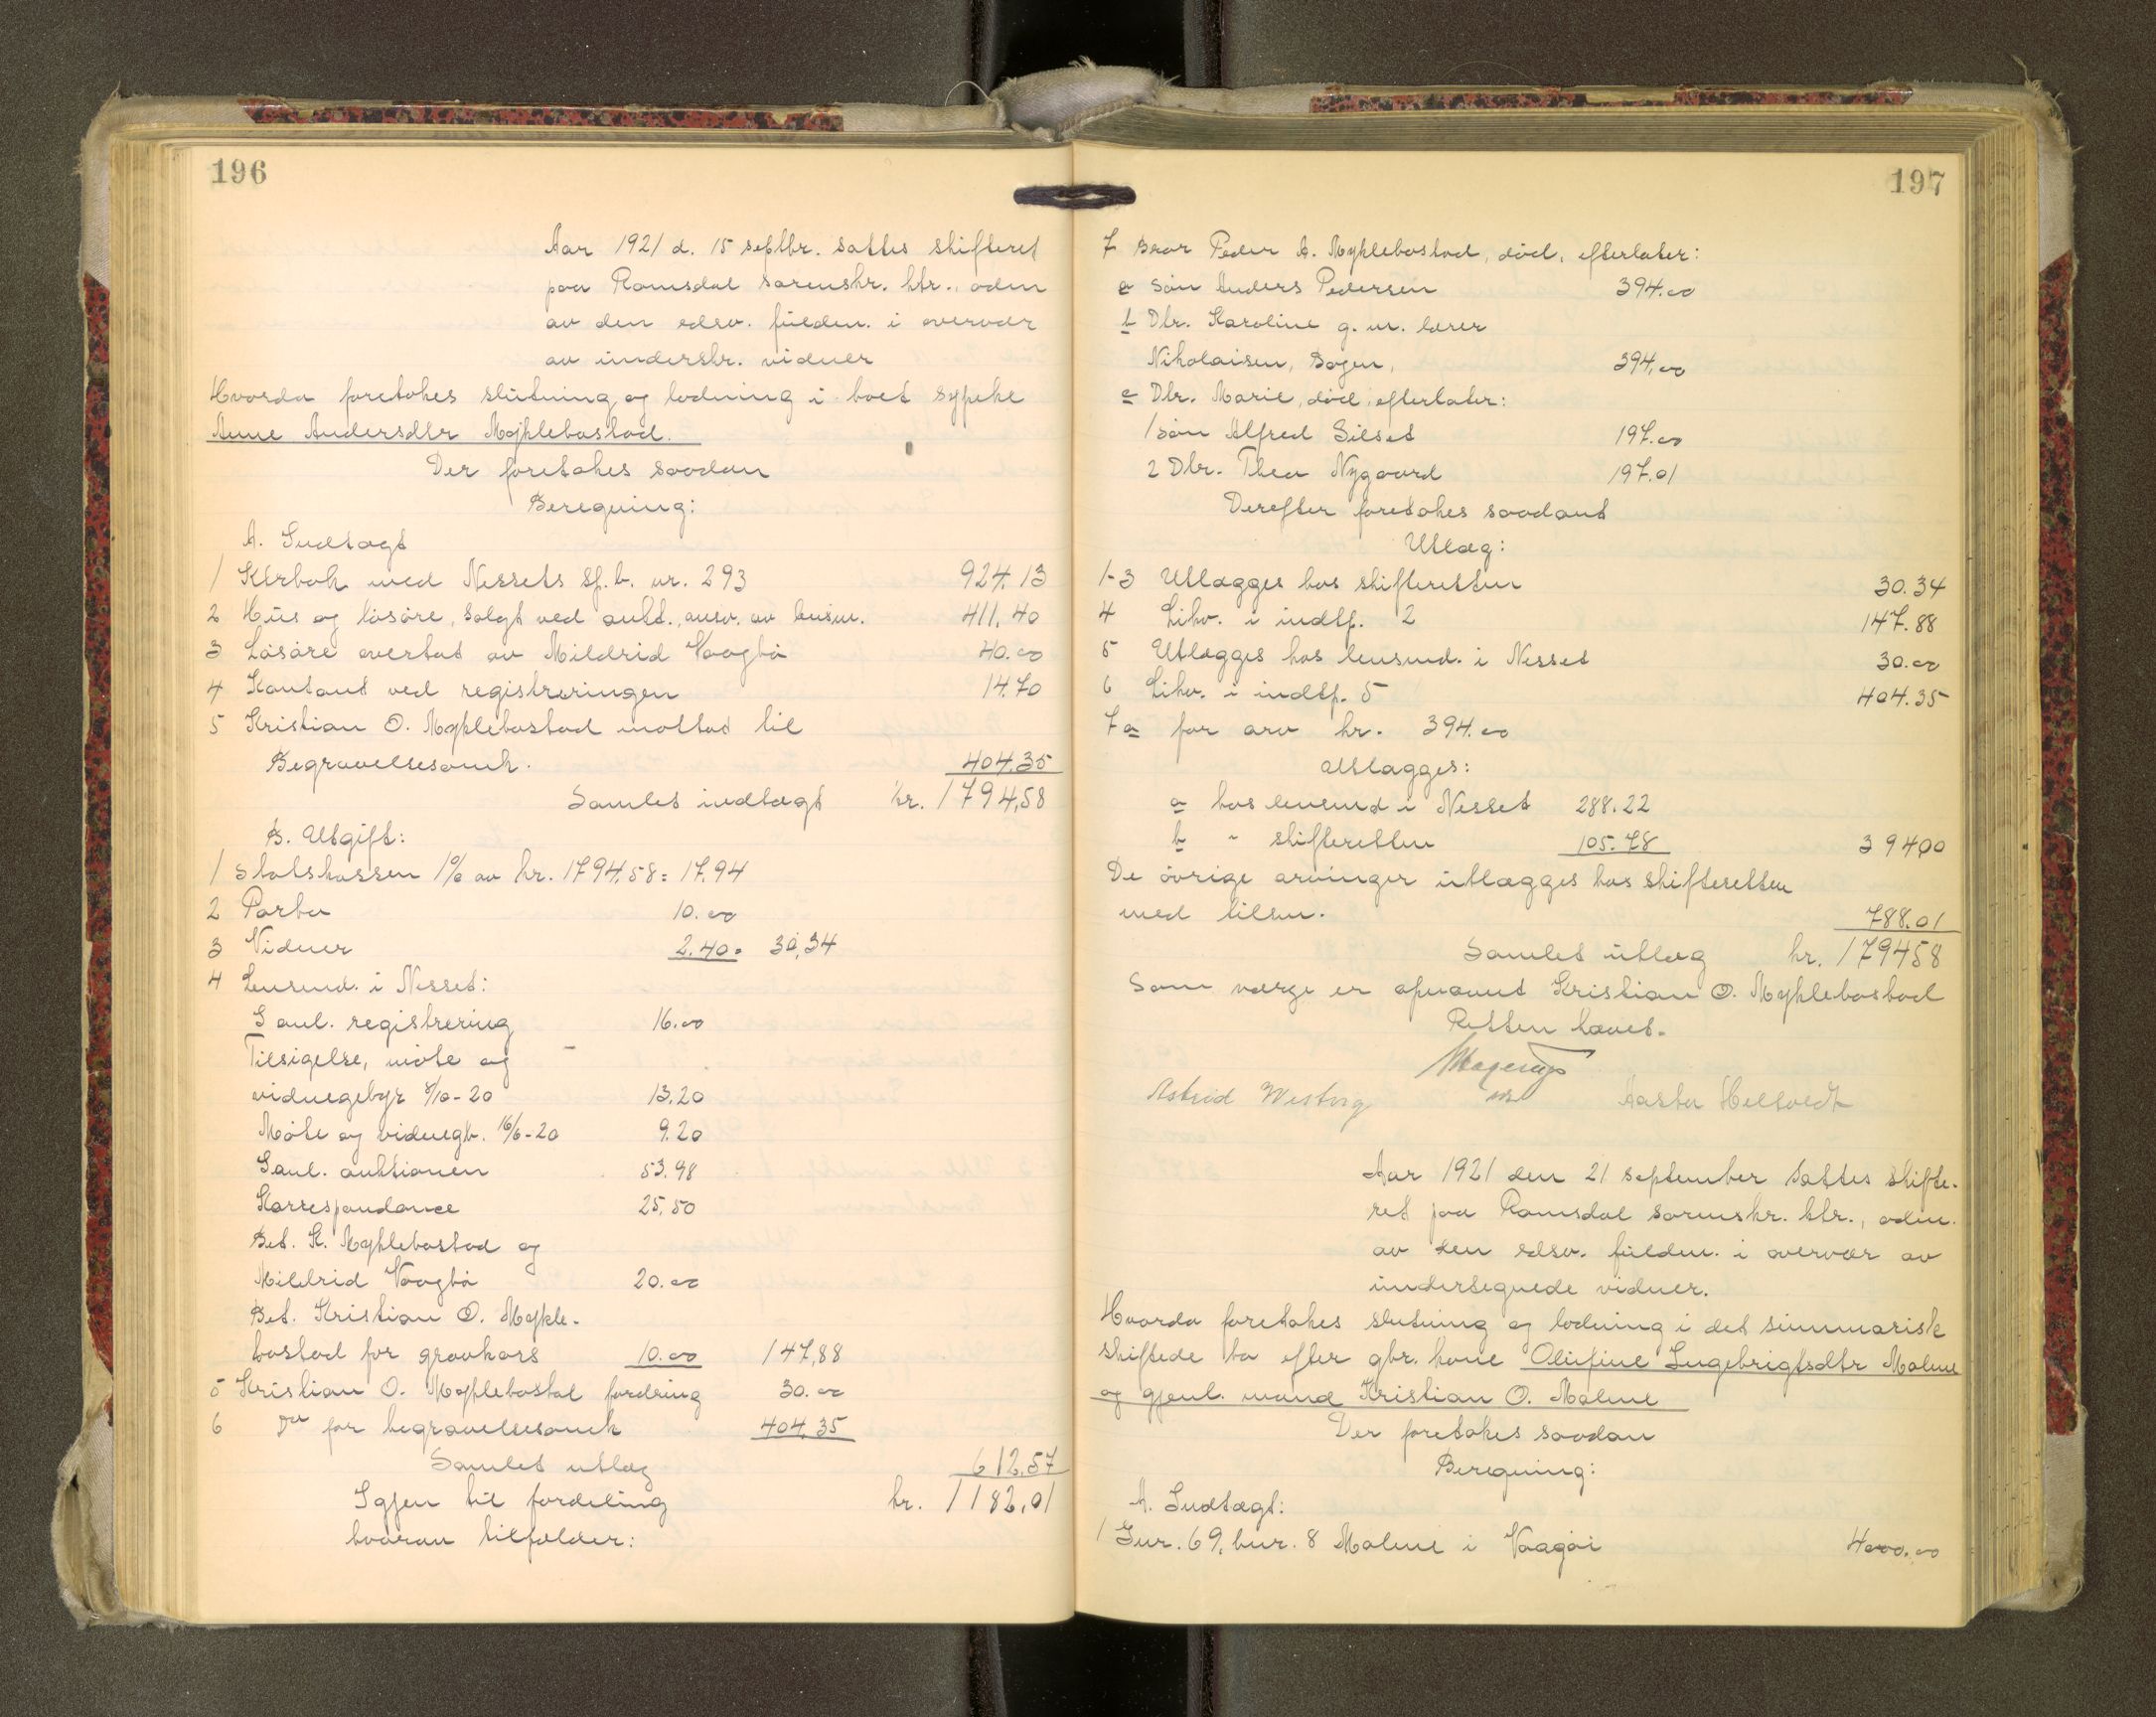 196
Aar 1921 d. 15 septbr. sattes skifteret
paa Romsdal sorenskr. ktr., adm
av den edsv. fuldm. i overvær
av underskr. vidner
Hvorda foretokes slutning og lodning i boet sypike
Anne Andersdtr Myklebostad.
Der foretokes saadan
Beregning:
A. Indtægt
1 Ktrbok med Nessets Sp.b. nr. 293 924.13
2 Hus og lösöre, solgt ved aukt., ansv. av lensm. 411,40
3 Lösöre overtat av Mildrid Vaagbö 40.00
4 Kontant ved registreringen 14.70
5 Kristian O. Myklebostad mottat til
Begravelsesomk. 404.35
Samlet indtægt kr. 1794,58
B. Utgift:
1 Statskassen 1% av kr. 1794.58 = 17,94
2 Porto 10.00
3 Vidner 2.40 = 30,34
4 Lensmd. i Nesset:
I anl. registrering 16.00
Tilsigelse, möte og
vidnegebyr 8/10-20 13.20
Möte og vidnegb. 16/6-20 9.20
I anl. auktionen 53.98
Korrespondance 25.50
Bet. K. Myklebostad og
Mildrid Vaagbö 20.00
Bet. Kristian O. Mykle-
bostad for gravkors 10.00 147,88
5 Kristian O. Myklebostad fordring 30.00
6 Do for begravelsesomk 404.35
Samlet utlæg 612.57
Igjen til fordeling kr. 1182,01
hvorav tilfalder:
197
7 Bror Peder A. Myklebostad, död, efterlater:
a Sön Anders Pedersen 394.00
b Dtr. Karoline g. m. lærer
Nikolaisen, Bogen, 394.00
c Dtr. Marie, död, efterlater:
1 Sön Alfred Silset 197.00
2 Dtr. Thea Nygaard 197.01
Derefter foretokes saadant
Utlæg:
1-3 Utlægges hos skifteretten 30.34
4 Likv. i indtp. 2 147.88
5 Utlægges hos lensmd. i Nesset 30.00
6 Likv. i indtp. 5 404.35
7 a for arv kr. 394.00
utlægges:
a hos lensmd i Nesset 288.22
b " skifteretten 105.78 394,00
De övrige arvinger utlægges hos skifteretten
med tilsm. 788.01
Samlet utlæg kr. 1794.58
Som værge er opnævnt Kristian O. Myklebostad
Retten hævet.
Astrid Westvig Aasta Heltvedt
Aar 1921 den 21 september sattes skifte-
ret paa Romsdal sorenskr. ktr., adm.
av den edsv. fuldm. i overvær av
undertegnede vidner.
Hvorda foretokes slutning og lodning i det summarisk
skiftede bo efter gbr. kone Olufine Ingebrigtsdtr Malme
og gjenl. mand Kristian O. Malme
Der foretokes saadan
Beregning:
A. Indtægt:
1 Gnr. 69, bnr. 8 Malme i Vaagöi 4000.00